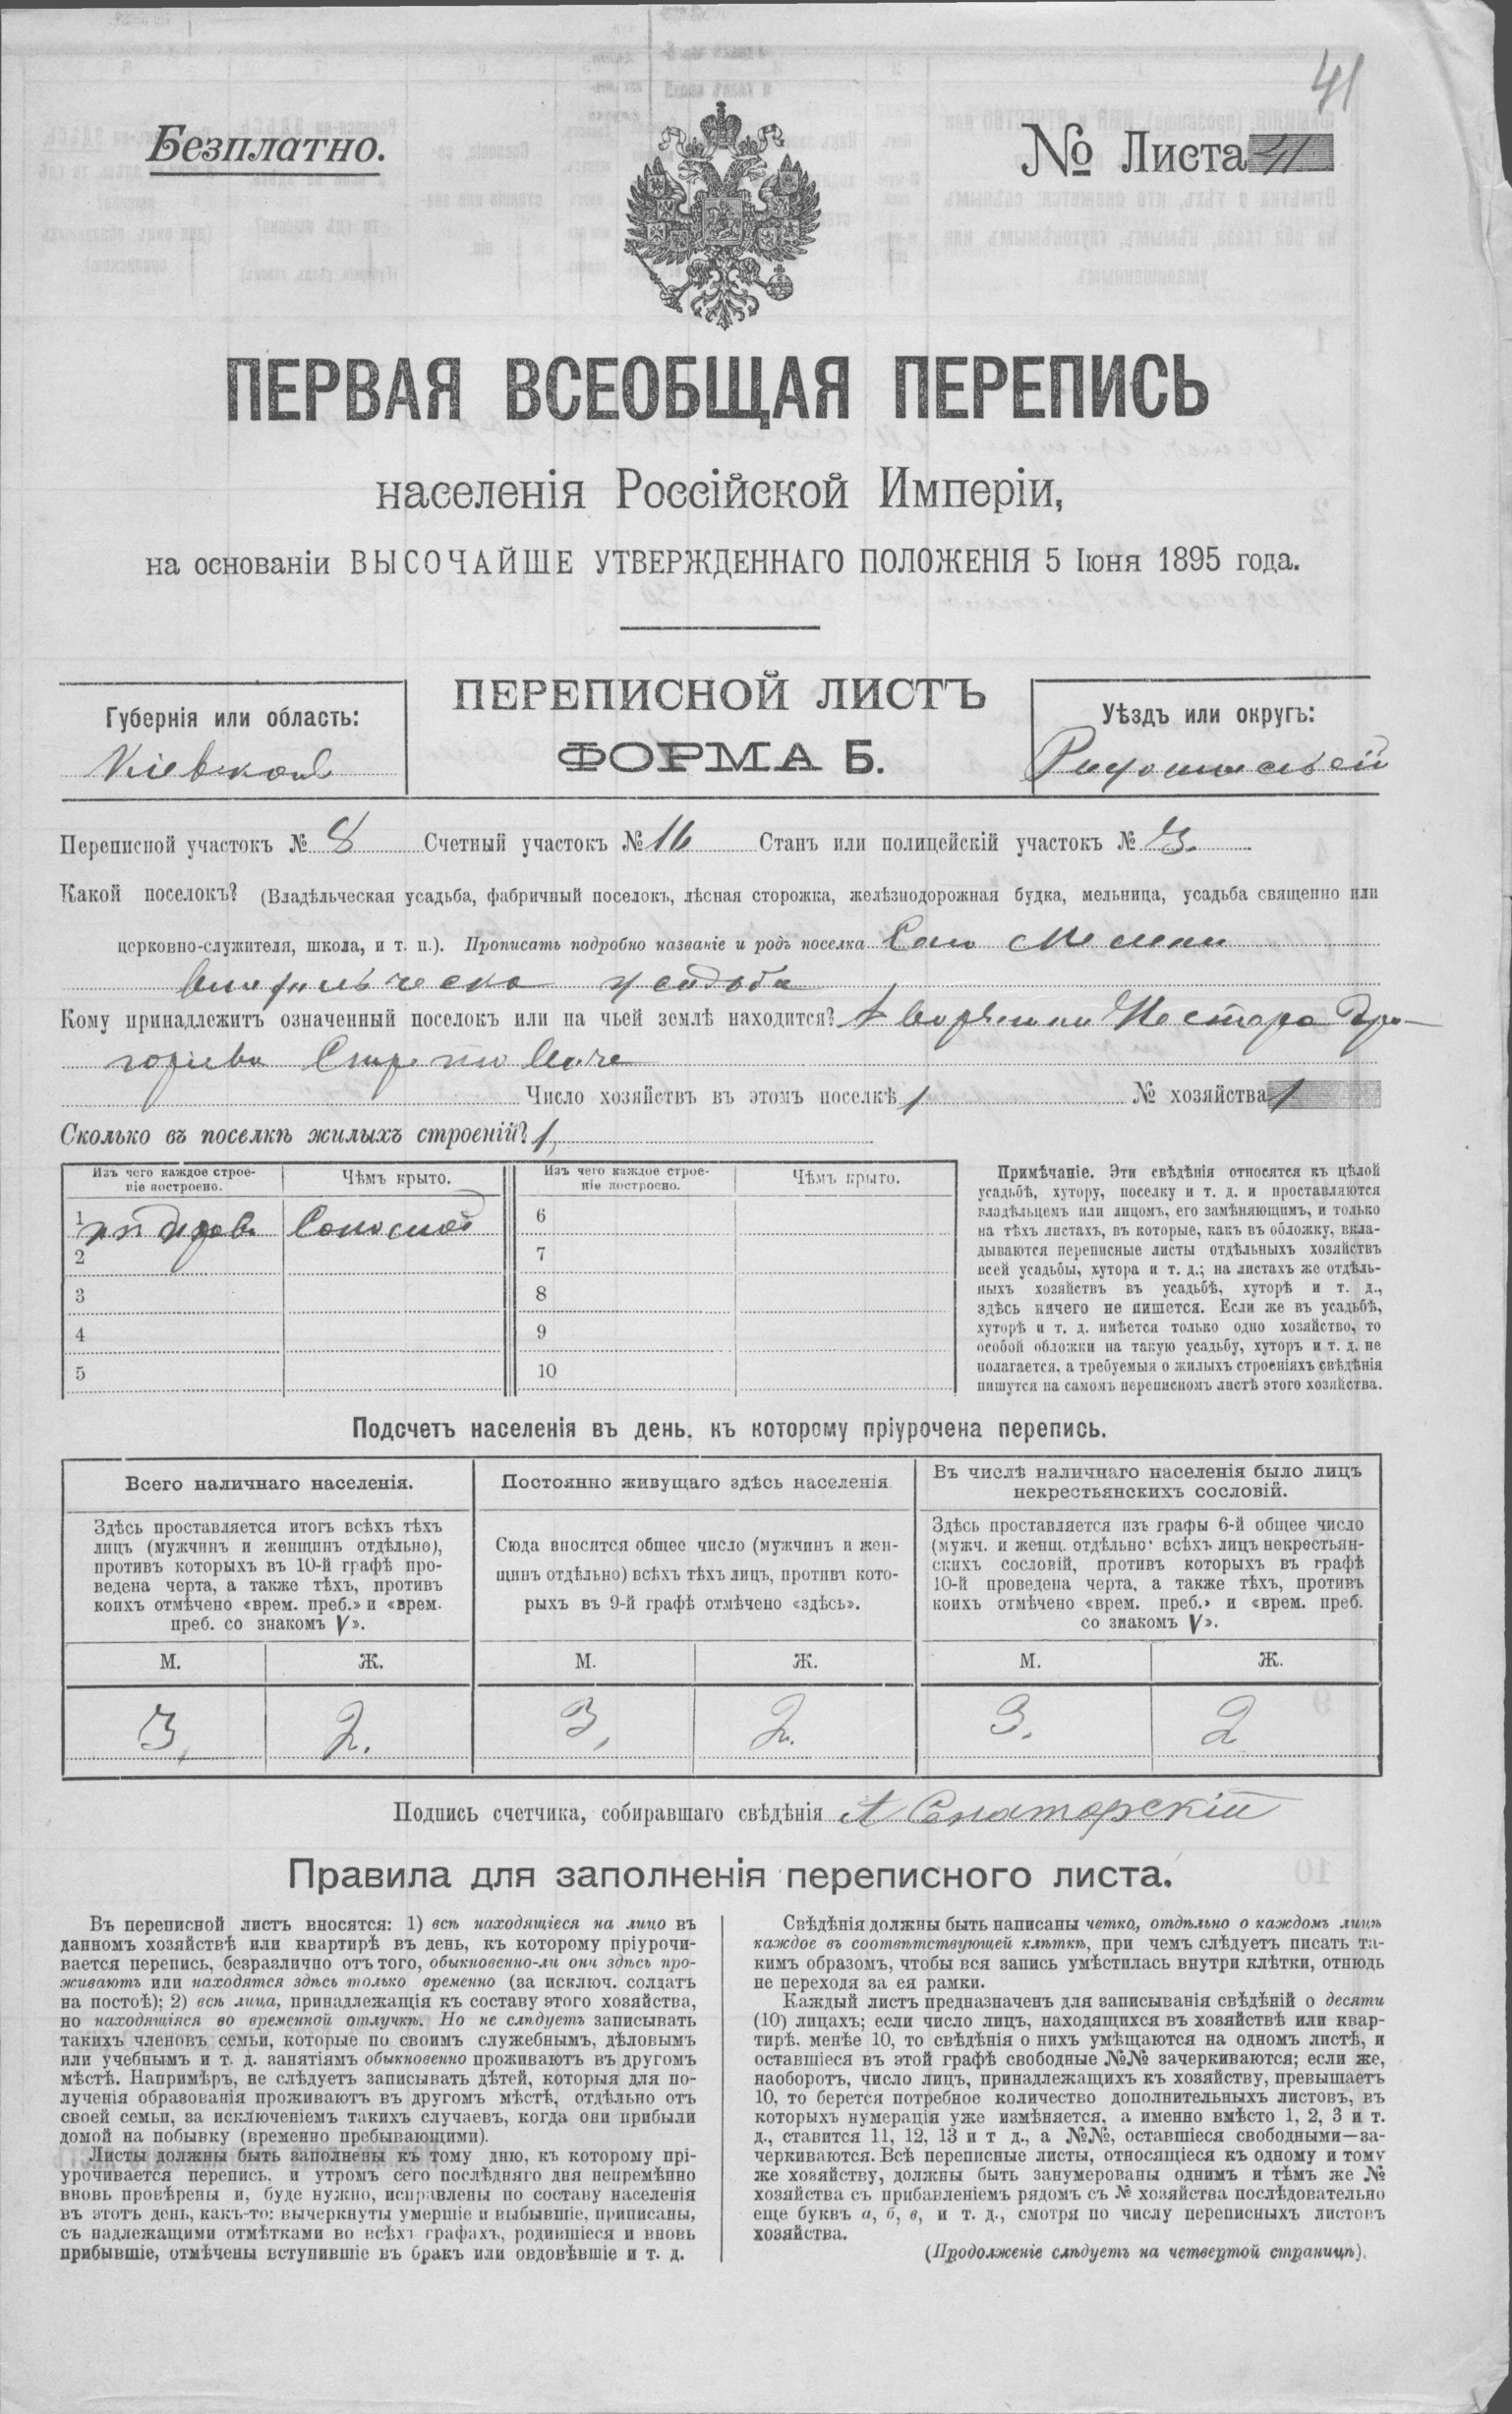 41
Безплатно.
№ Листа 41
ПЕРВАЯ ВСЕОБЩАЯ ПЕРЕПИСЬ
населенія Россійской Имперіи,
на основаніи ВЫСОЧАЙШЕ УТВЕРЖДЕННАГО ПОЛОЖЕНІЯ 5 Іюня 1895 года.
Губернія или область:
Кіевской
ПЕРЕПИСНОЙ ЛИСТЪ
ФОРМА Б.
Уѣздъ или округъ:
Переписной участокъ № 8 Счетный участокъ № 16 Станъ или полицейскій участокъ № 3.
Какой поселокъ? (Владѣльческая усадьба, фабричный поселокъ, лѣсная сторожка, желѣзнодорожная будка, мельница, усадьба священно или
церковно-служителя, школа, и т. п.). Прописать подробно названіе и родъ поселка Село
усадьба
Кому принадлежитъ означенный поселокъ или на чьей землѣ находится? Нестора
Число хозяйствъ въ этомъ поселкѣ 1 № хозяйства 1
Сколько въ поселкѣ жилыхъ строеній? 1,
Изъ чего каждое строе-
ніе построено.
Чѣмъ крыто.
Изъ чего каждое строе-
ніе построено.
Чѣмъ крыто.
1 Соломой 6
2 7
3 8
4 9
5 10
Примѣчаніе. Эти свѣдѣнія относятся къ цѣлой
усадьбѣ, хутору, поселку и т. д. и проставляются
владѣльцемъ или лицомъ, его замѣняющимъ, и только
на тѣхъ листахъ, въ которые, какъ въ обложку, вкла-
дываются переписные листы отдѣльныхъ хозяйствъ
всей усадьбы, хутора и т. д.; на листахъ же отдѣль-
ныхъ хозяйствъ въ усадьбѣ, хуторѣ и т. д.,
здѣсь ничего не пишется. Если же въ усадьбѣ,
хуторѣ и т. д. имѣется только одно хозяйство, то
особой обложки на такую усадьбу, хуторъ и т. д. не
полагается, а требуемыя о жилыхъ строеніяхъ свѣдѣнія
пишутся на самомъ переписномъ листѣ этого хозяйства.
Подсчетъ населенія въ день, къ которому пріурочена перепись.
Всего наличнаго населенія.
Здѣсь проставляется итогъ всѣхъ тѣхъ
лицъ (мужчинъ и женщинъ отдѣльно),
противъ которыхъ въ 10-й графѣ про-
ведена черта, а также тѣхъ, противъ
коихъ отмѣчено «врем. преб.» и «врем.
преб. со знакомъ V».
Постоянно живущаго здѣсь населенія
Сюда вносится общее число (мужчинъ и жен-
щинъ отдѣльно) всѣхъ тѣхъ лицъ, противъ кото-
рыхъ въ 9-й графѣ отмѣчено «здѣсь».
Въ числѣ наличнаго населенія было лицъ
некрестьянскихъ сословій.
Здѣсь проставляется изъ графы 6-й общее число
(мужч. и женщ. отдѣльно) всѣхъ лицъ некрестьян-
скихъ сословій, противъ которыхъ въ графѣ
10-й проведена черта, а также тѣхъ, противъ
коихъ отмѣчено «врем. преб.» и «врем. преб.
со знакомъ V».
М. Ж. М. Ж. М. Ж.
3, 2. 3, 2. 3. 2
Подпись счетчика, собиравшаго свѣдѣнія А Сенаторскій
Правила для заполненія переписного листа.
Въ переписной листъ вносятся: 1) всѣ находящіеся на лицо въ
данномъ хозяйствѣ или квартирѣ въ день, къ которому пріурочи-
вается перепись, безразлично отъ того, обыкновенно-ли они здѣсь про-
живаютъ или находятся здѣсь только временно (за исключ. солдатъ
на постоѣ); 2) всѣ лица, принадлежащія къ составу этого хозяйства,
но находящіяся во временной отлучкѣ. Но не слѣдуетъ записывать
такихъ членовъ семьи, которые по своимъ служебнымъ, дѣловымъ
или учебнымъ и т. д. занятіямъ обыкновенно проживаютъ въ другомъ
мѣстѣ. Напримѣръ, не слѣдуетъ записывать дѣтей, которыя для по-
лученія образованія проживаютъ въ другомъ мѣстѣ, отдѣльно отъ
своей семьи, за исключеніемъ такихъ случаевъ, когда они прибыли
домой на побывку (временно пребывающими).
Листы должны быть заполнены къ тому дню, къ которому прі-
урочивается перепись, и утромъ сего послѣдняго дня непремѣнно
вновь провѣрены и, буде нужно, исправлены по составу населенія
въ этотъ день, какъ-то: вычеркнуты умершіе и выбывшіе, приписаны,
съ надлежащими отмѣтками во всѣхъ графахъ, родившіеся и вновь
прибывшіе, отмѣчены вступившіе въ бракъ или овдовѣвшіе и т. д.
Свѣдѣнія должны быть написаны четко, отдѣльно о каждомъ лицѣ
каждое въ соотвѣтствующей клѣткѣ, при чемъ слѣдуетъ писать та-
кимъ образомъ, чтобы вся запись умѣстилась внутри клѣтки, отнюдь
не переходя за ея рамки.
Каждый листъ предназначенъ для записыванія свѣдѣній о десяти
(10) лицахъ; если число лицъ, находящихся въ хозяйствѣ или квар-
тирѣ, менѣе 10, то свѣдѣнія о нихъ умѣщаются на одномъ листѣ, и
оставшіеся въ этой графѣ свободные №№ зачеркиваются; если же,
наоборотъ, число лицъ, принадлежащихъ къ хозяйству, превышаетъ
10, то берется потребное количество дополнительныхъ листовъ, въ
которыхъ нумерація уже измѣняется, а именно вмѣсто 1, 2, 3 и т.
д., ставится 11, 12, 13 и т д., а №№, оставшіеся свободными—за-
черкиваются. Всѣ переписные листы, относящіеся къ одному и тому
же хозяйству, должны быть занумерованы однимъ и тѣмъ же №
хозяйства съ прибавленіемъ рядомъ съ № хозяйства послѣдовательно
еще буквъ а, б, в, и т. д., смотря по числу переписныхъ листовъ
хозяйства.
(Продолженіе слѣдуетъ на четвертой страницѣ).